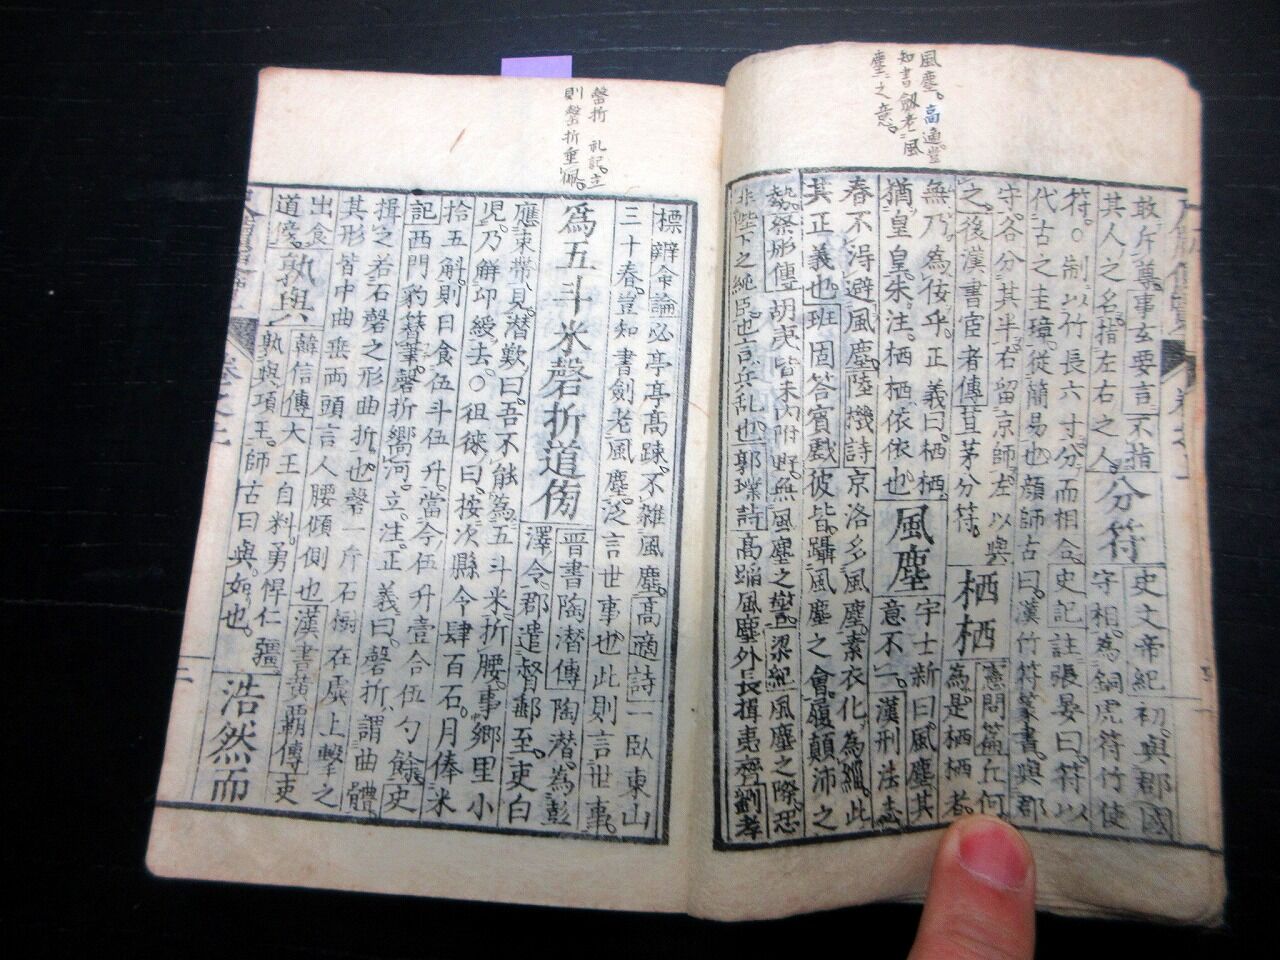 風塵。高適豈
知書劔老風
塵之意。
敢斥尊。事玄要言不指
其人之名。指左右之人。分符史文帝紀初。與郡國
守相。為銅虎符竹使
符。○制以竹長六寸。分而相合。史記註張晏曰。符以
代古之圭璋。從簡易也。顔師古曰。漢竹符篆書。與郡
守。各分其半。右留京師。左以與
之。後漢書宦者傳苴茅分符。栖栖憲問篇丘何
為是栖栖者。
無乃為佞乎。正義曰。栖栖。
猶皇皇朱注。栖栖依依也風塵宇士新曰。風塵其
意不一。漢刑法志
春不得避風塵。陸機詩京洛多風塵。素衣化為緇。此
其正義也班固答賓戲彼皆躡風塵之會。履顛沛之
勢。蔡彤傳胡夷皆未内附。野無風塵之警。梁紀風塵之際。
非陛下之純臣。也言兵乱也。郭璞詩高蹈風塵外長揖夷齊劉孝
磬折礼記。立
則磬折垂佩。
標辨命論必亭亭高疎。不雜風塵。高適詩一臥東山
三十春。豈知書劍老風塵。泛言世事也。此則言世事。
為五斗米磬折道傍晋書陶潜傳陶潜。為彭
澤令。郡遣督郵至。吏白
應束帶見。潜歎曰。吾不能為五斗米。折腰。事郷里小
児。乃解印綬去。○徂徠曰。按次縣令肆百石。月俸米
拾五斛。則日食伍斗伍升。當今伍升壹合伍勺餘。史
記西門豹簪筆。磬折嚮河。立。注。正義曰。磬折。謂曲體。
揖之若石磬之形曲折也。磬一片石樹在虡上擊之
其形皆中曲垂兩頭言人腰傾側也漢書黄覇傳吏
出食
道傍。孰與韓信傳大王自料。勇悍仁彊
孰與項王。師古曰。與。如也。浩然而